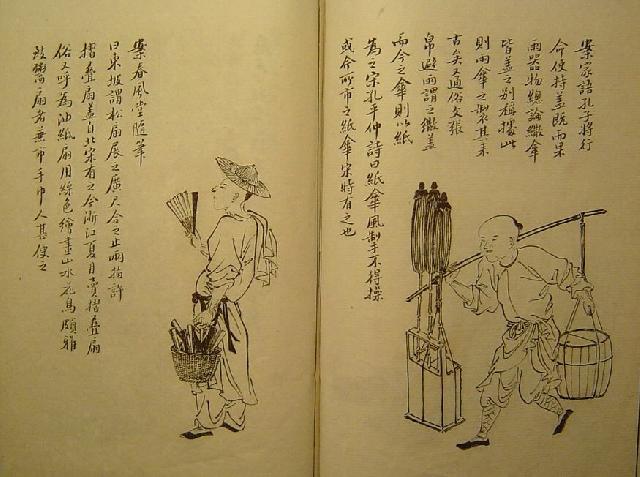 案家語孔子將行
命使持蓋既而果
雨器物總論繖傘
皆蓋之別稱據此
則雨傘之製其來
古矣又通俗文張
帛避雨謂之繖蓋
而今之傘則以紙
為之宋孔平仲詩曰紙傘風掣不得操
或今所市之紙傘宋時有之也
案春風堂隨筆
曰東坡謂松扇展之廣尺合之止兩指許
摺疊扇蓋自北宋有之今浙江夏月賣摺疊扇
俗又呼為油紙扇用綵色繪畫山水花鳥頗雅
扇者兼市手巾人甚便之